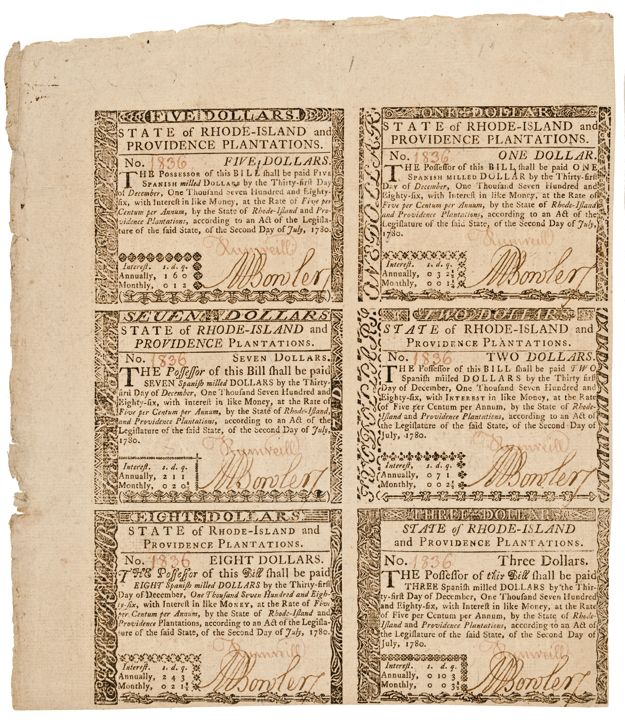 FIVE DOLLARS.
STATE of RHODE-ISLAND and
PROVIDENCE PLANTATIONS.
No. 1836 FIVE DOLLARS.
THE POSSESSOR of this BILL shall be paid FIVE
SPANISH milled DOLLARS by the Thirty-first Day
of December, One Thousand Seven Hundred and
Eighty-six, with Interest in like Money, at the Rate of Five per
Centum per Annum, by the State of Rhode-Island and Pro-
vidence Plantations, according to an Act of the Legisla-
ture of the said State, of the Second Day of July, 1780.
Rumreill
Interest. s. d. q.
Annually, 1 6 0
Monthly, 0 1 2
M Bowler
ONE DOLLAR
ONE DOLLAR
STATE of RHODE-ISLAND and
PROVIDENCE PLANTATIONS.
No. 1836 ONE DOLLAR.
THE POSSESSOR of this BILL shall be paid ONE
SPANISH MILLED DOLLAR by the Thirty-first Day
of December, One Thousand Seven Hundred and
Eighty-six, with Interest in like Money, at the Rate of
Five per Centum per Annum, by the State of Rhode-Island
and Providence Plantations, according to an Act of the
Legislature of the said State, of the Second Day of July,
1780.
Rumreill
Interest. s. d. q.
Annually, 0 3 2⅖
Monthly, 0 0 1
M Bowler
SEVEN DOLLARS
STATE of RHODE-ISLAND and
PROVIDENCE PLANTATIONS.
No. 1836 SEVEN DOLLARS.
THE Possessor of this Bill shall be paid
SEVEN Spanish milled DOLLARS by the Thirty-
first Day of December, One Thousand Seven Hundred and
Eighty-six, with Interest in like Money, at the Rate of
Five per Centum per Annum, by the State of Rhode-Island,
and Providence Plantations, according to an Act of the
Legislature of the said State, of the Second Day of July,
1780.
Rumreill
Interest. s. d. q.
Annually, 2 1 1
Monthly, 0 2 0
M Bowler
TWO DOLLARS
TWO DOLLARS
STATE of RHODE-ISLAND and
PROVIDENCE PLANTATIONS.
No. 1836 TWO DOLLARS.
THE POSSESSOR of this BILL shall be paid TWO
Spanish milled DOLLARS by the Thirty-first
Day of December, One Thousand Seven Hundred and
Eighty-six, with INTEREST in like Money, at the Rate
of Five per Centum per Annum, by the State of Rhode-
Island and Providence Plantations, according to an Act of
the Legislature of the said State, of the Second Day of July,
1780.
Rumreill
Interest. s. d. q.
Annually, 0 7 1
Monthly, 0 0 2
M Bowler
EIGHT DOLLARS
STATE of RHODE-ISLAND and
PROVIDENCE PLANTATIONS.
No. 1836 EIGHT DOLLARS.
THE Possessor of this Bill shall be paid
EIGHT Spanish milled DOLLARS by the Thirty-first
Day of December, One Thousand Seven Hundred and Eigh-
ty-six, with Interest in like MONEY, at the Rate of Five
per Centum per Annum, by the State of Rhode-Island and
Providence Plantations, according to an Act of the Legisla-
ture of the said State, of the Second Day of July, 1780.
Rumreill
Interest. s. d. q.
Annually, 2 4 3
Monthly, 0 2 1
M Bowler
THREE DOLLARS
STATE of RHODE-ISLAND
and PROVIDENCE PLANTATIONS.
No. 1836 Three Dollars.
THE Possessor of this Bill shall be paid
THREE Spanish milled DOLLARS by the Thir-
ty-first Day of December, One Thousand Seven Hundred
and Eighty-six, with Interest in like Money, at the Rate of
Five per Centum per Annum, by the State of Rhode-
Island and Providence Plantations, according to an Act of
the Legislature of the said State, of the Second Day of
July, 1780.
Rumreill
Interest. s. d. q.
Annually, 0 10 3
Monthly, 0 0 3
M Bowler